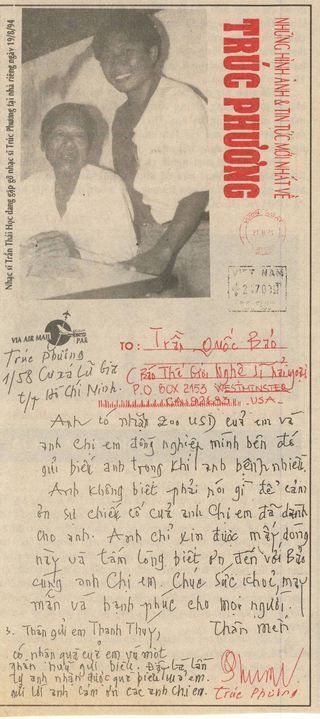 NHỮNG HÌNH ẢNH & TIN TỨC MỚI NHẤT VỀ
TRÚC PHƯƠNG
Nhạc sĩ Trần Thái Học đang gặp gỡ nhạc sĩ Trúc Phương tại nhà riêng ngày 19/8/94
VIET NAM
VIA AIR MAIL
PAR
Trúc Phương
1/58 Cư xá Lữ Gia
t/p Hồ Chí Minh.
TO: Trần Quốc Bảo
(Báo Thế Giới Nghệ Sĩ hải ngoại)
P.O BOX 2153 WESTMINSTER
CA 92683 - USA -
Anh có nhận 200 USD của em và
anh chị em đồng nghiệp mình bên đó
gửi biếu anh trong khi anh bệnh nhiều.
Anh không biết phải nói gì để cảm
ơn sự chiếu cố của anh chị em đã dành
cho anh. Anh chỉ xin được mấy dòng
này và tấm lòng biết ơn đến với Bảo
cùng anh chị em. Chúc sức khoẻ, may
mắn và hạnh phúc cho mọi người.
Thân mến
Thân gửi em Thanh Thuý,
có nhận quà của em và một
nhân hữu gửi biếu. Đây là lần
anh nhận được quà biếu của em.
gửi lời anh cảm ơn các anh chị em.
Trúc Phương